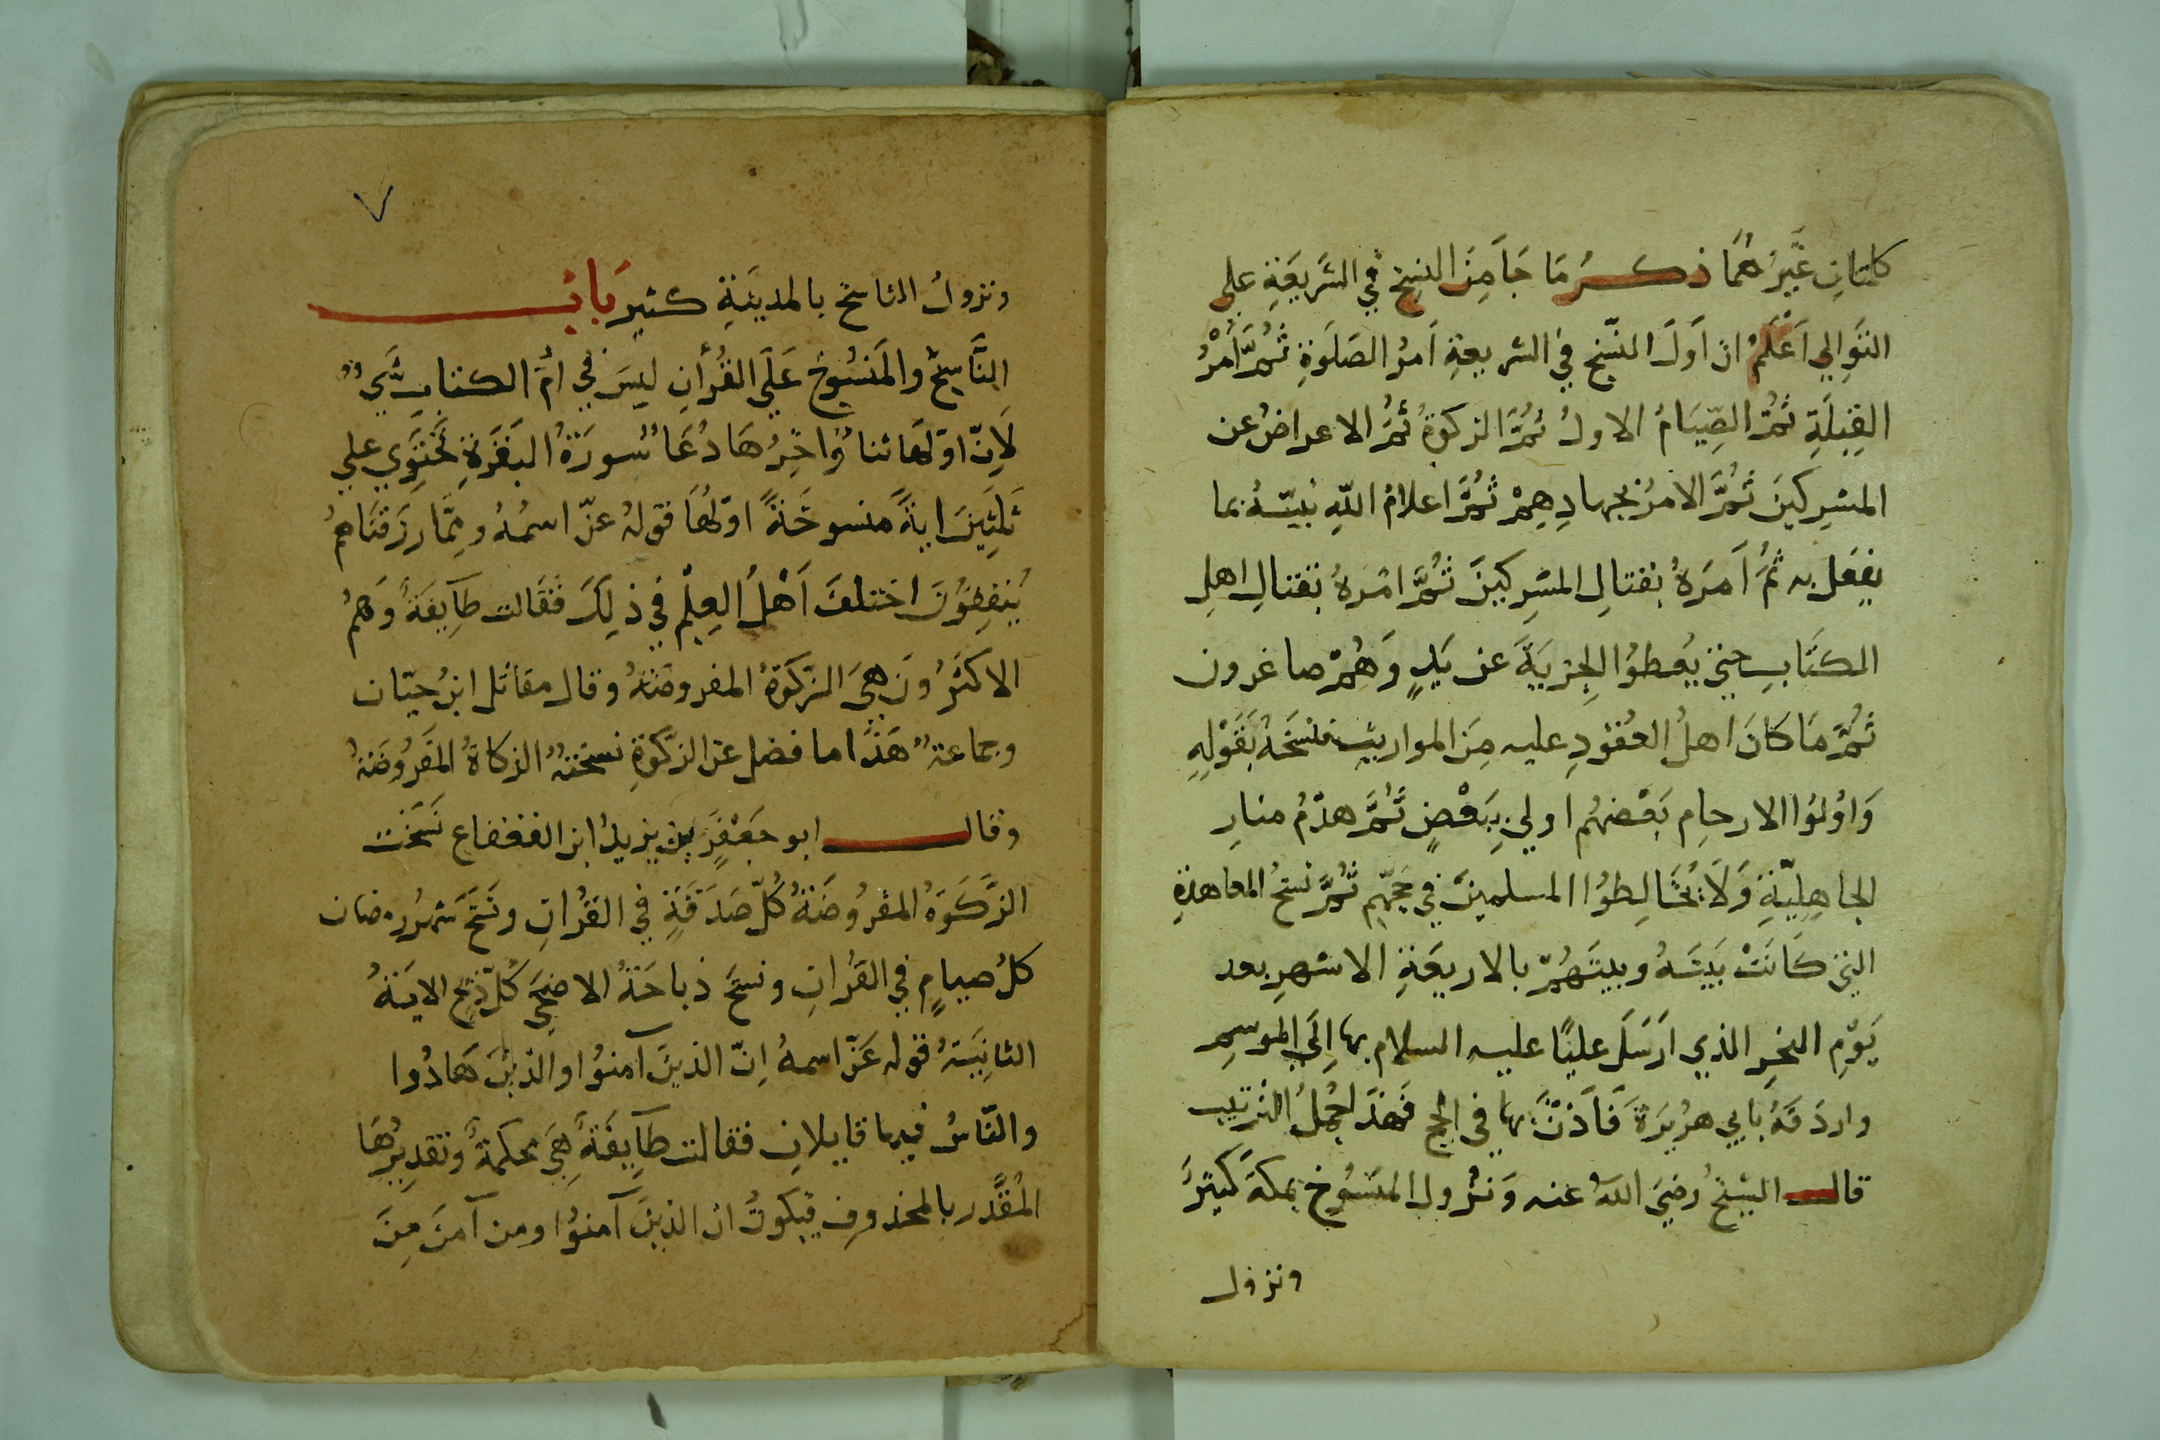 كلمتان غَيرُهُمَا ذكـــرُ مَا جَآ مِنَ النسخ في الشَريعَةِ علي
التَوالي اَعْلَمْ ان اَولَ النّسخ في الشريعةِ اَمرُ الصَلَوةِ ثمَّ أَمْرُ
القِبلَةِ ثمَّ الصّيَامُ الاولُ ثمَّ الزكوةُ ثمَّ الاعراضُ عن
المشرِكينَ ثمَّ الامرُ بجهادِهِمْ ثمَّ اعلامُ اللّهِ نبيّهُ بما
يفعَل به ثمَّ اَمَرَهُ بقتالِ المشرِكينَ ثمَّ امَرهُ بقتالِ اهلِ
الكتَابِ حتي يُعطوُا الجِزيَةَ عن يَدٍ وَهُمْ صاغرون
ثمَّ مَا كَانَ اهلُ العُقودِ عليه مِنَ المواريثِ فنسَخَهُ بقَوْلِهِ
وَاوُلوُا الارحامِ بَعْضهُم اولي بِبَعْضٍ ثمَّ هدْمُ منارِ
الجاهِليّةِ وَلَا يُخَالِطوُا المسلمينَ في حَجّهِم ثمَّ نسخُ المعاهدةِ
التي كَانَتْ بَينَهُ وبينَهُمْ بالاربعَةِ الاشهرِ بعد
يَوْمِ النحرِ الذي اَرَسَلَ عليًا عليه السلام بها اِلَي الموسِمِ
واردَفَهُ بابي هرُيرَةَ فَاَذنَ بها في الحج فهَذَا جمُلُ الترتيب
قالـــ الشيخُ رضيَ اللّهُ عنه وَنزُول المنسُوخِ بمكةَ كَثيرُ
ونزول
٧
ونزولُ الناسخ بالمدينَةِ كثير بَابُـــــ
النَّاسِخُ والمَنسُوخِ عَلَى القُرآنِ ليسَ في امّ الكتاب شَيءٌ
لَاِنّ اوّلهَا ثناءٌ وَاخِرُهَا دُعَاءٌ سُورَةُ البَقَرةِ تَحْتَوي علي
ثلثِينَ ايةً منسوخَةً اوّلهَا قولهُ عزّ اسمُهُ ومِمَّا رزَقنَاهُم
يُنفِقوُنَ اختلَفَ اَهْلُ العِلْمِ في ذلِكَ فَقَالت طَآيفَةٌ وَهُمُ
الاكثَرُونَ هيَ الزكَوةُ المفروضَةُ وقال مقاتل ابنُ حيّان
وجماعةٌ هَذَا ما فضل عن الزَكوةِ نسخَتْهُ الزكاةُ المَفرُوضَةُ
وقالـــــ ابو جَعْفَر بن يزيدُ ابن القعقاع نَسَخَت
الزَكَوَةُ المفرُوضَةُ كُلّ صَدَقَةٍ في القرُانِ ونَسَخَ شهرُ رمضان
كلُ صيامٍ في القرُانِ ونسَخَ ذباحَةُ الاضحَي كُلّ ذبحٍ الايَةُ
الثانِيَةُ قوله عَزّ اسمهُ اِنّ الذينَ آمنوُا والذينَ هَادُوا
والنّاسُ فيها قايلانِ فقالت طَآيِفَةٌ هِيَ محكمةٌ وتقديرُهَا
المُقَدَّر بالمحذوفِ فيَكونُ ان الذينَ آمنوُا ومن آمنَ مِنَ